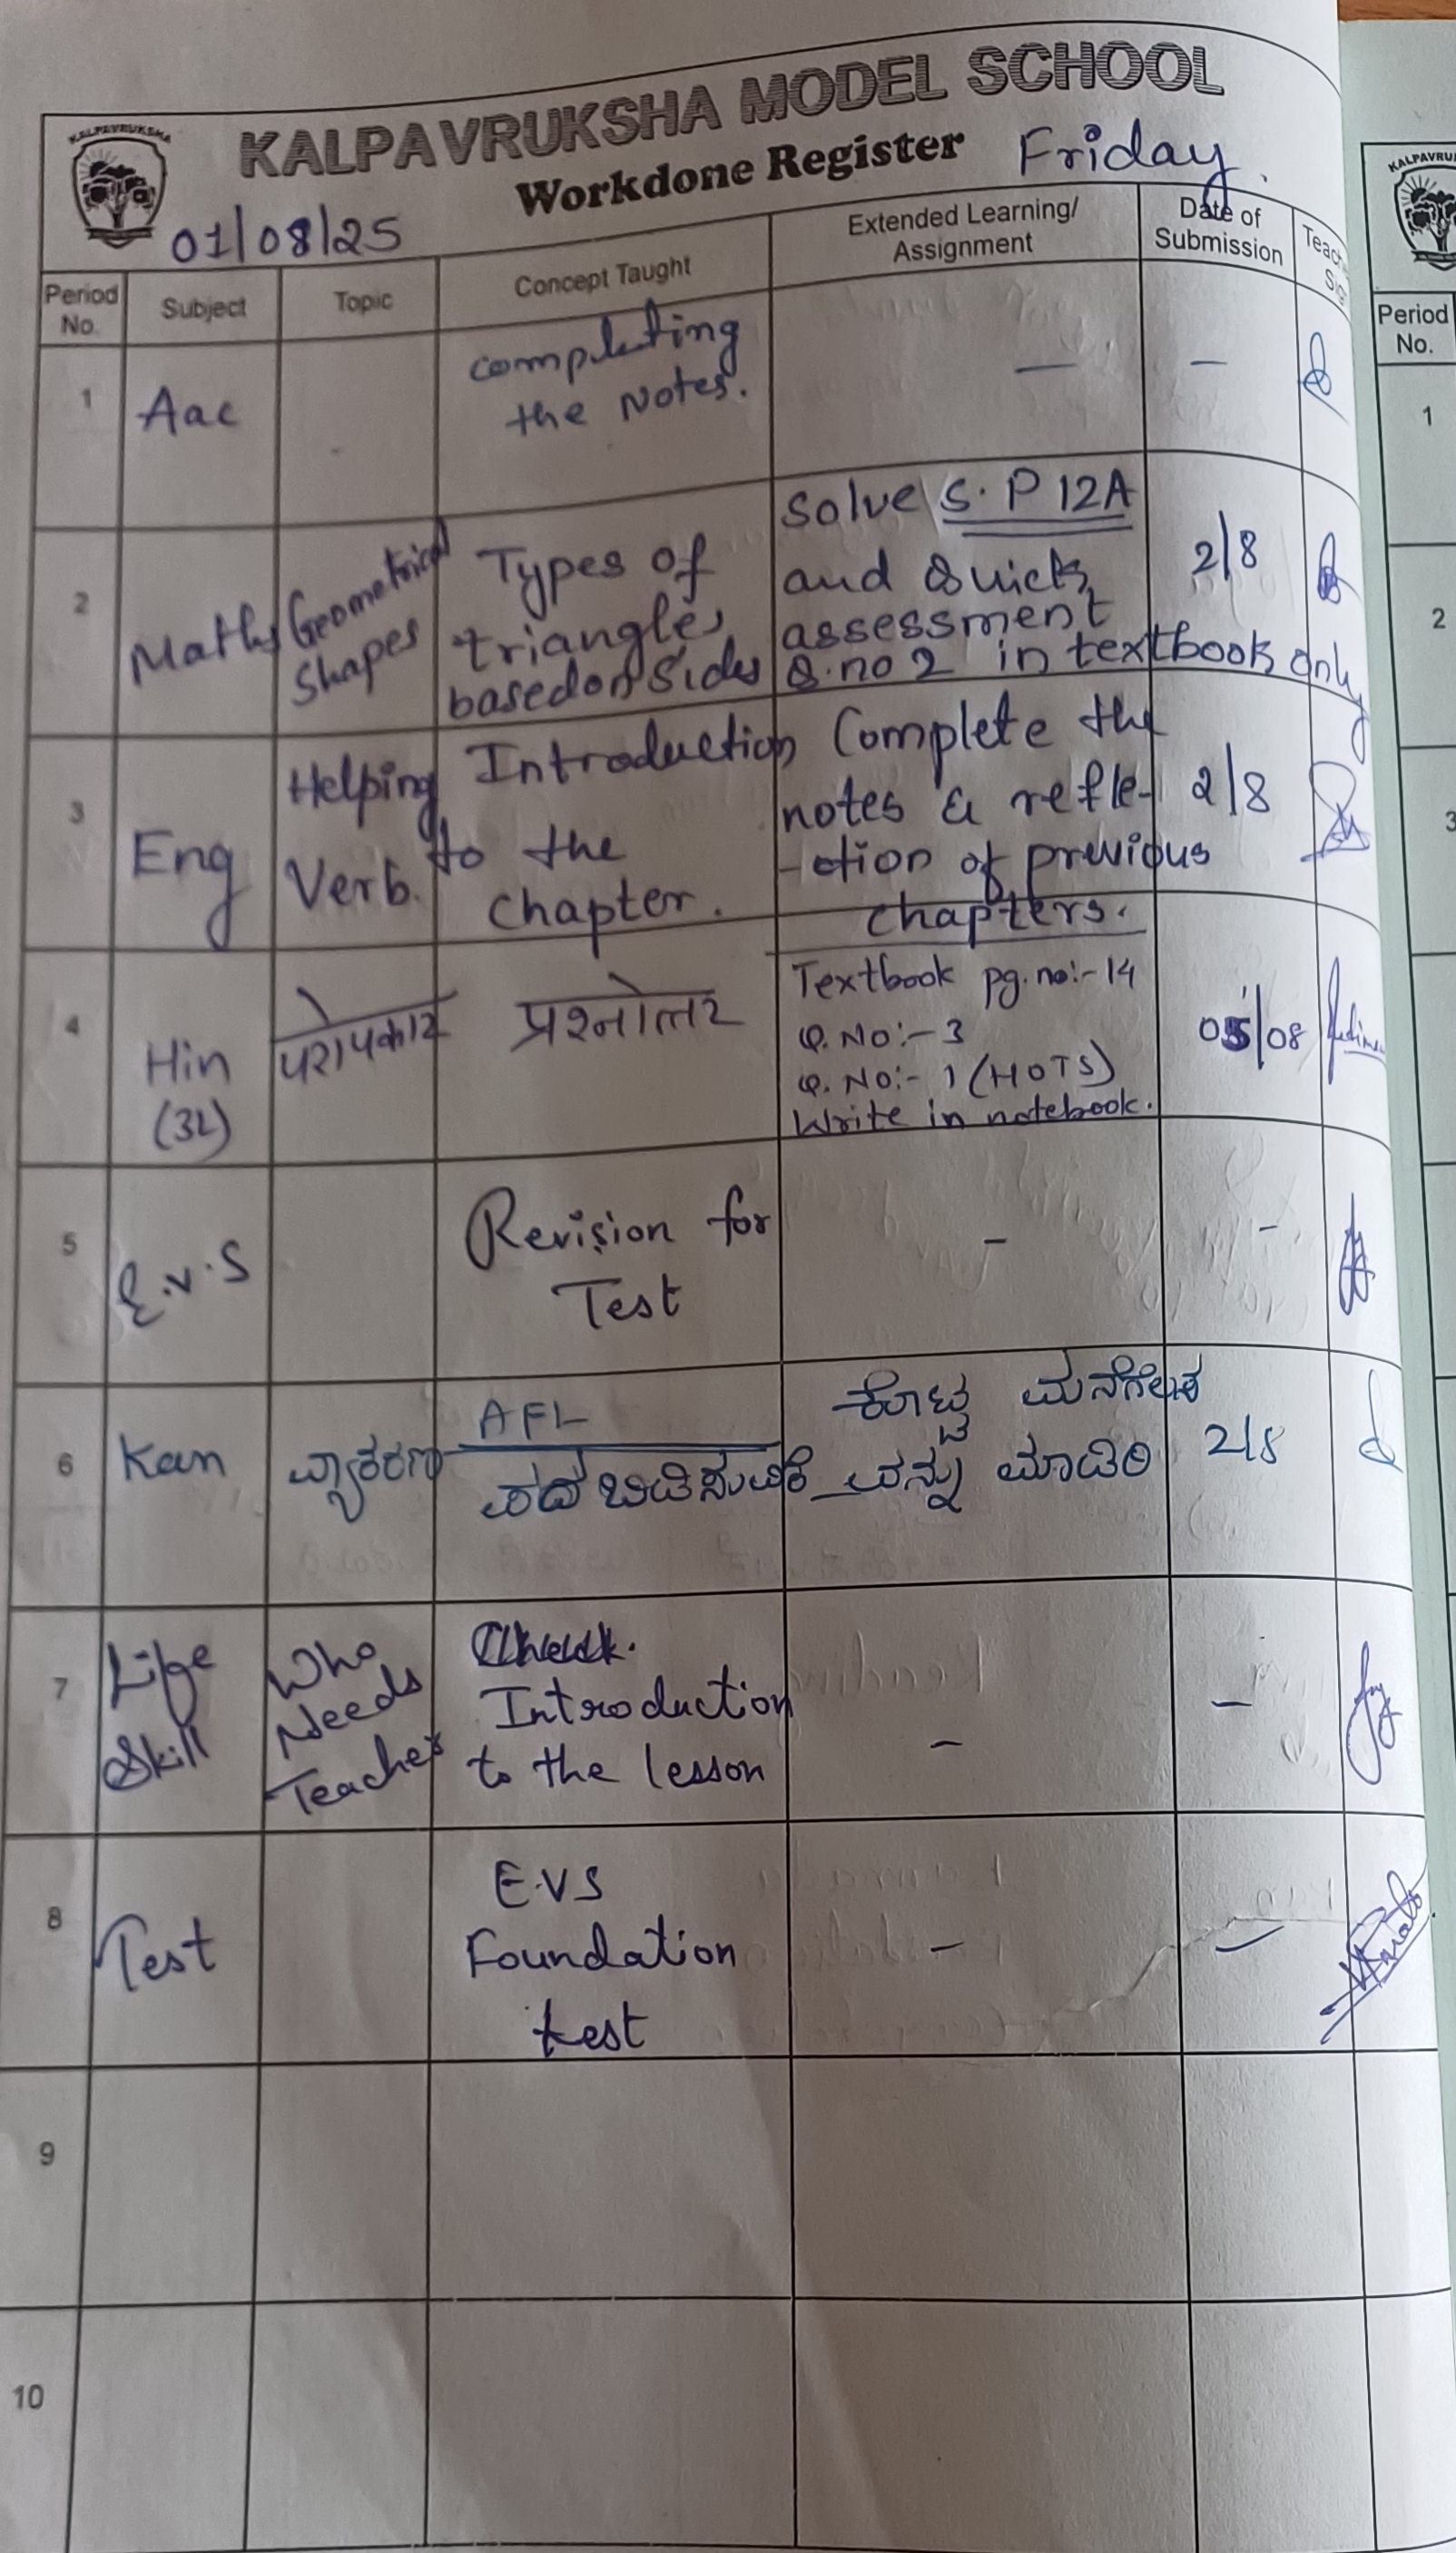 KALPAVRUKSHA MODEL SCHOOL
KALPAVRUKSHA
Workdone Register Friday.
01/08/25
Period No. Subject Topic Concept Taught Extended Learning/ Assignment Date of Submission
1 Aac completing
the Notes. — —
2 Maths Geometrical
Shapes
Types of
triangles
based on Sides
Solve S.P 12A
and Quick
assessment
Q.no 2 in textbook only
2/8
3 Eng Helping
Verb.
Introduction
to the
chapter.
Complete the
notes & refle-
-ction of previous
chapters.
2/8
4 Hin
(3L)
परोपकार
प्रश्नोत्तर
Textbook pg.no:-14
Q.No:-3
Q.No:- 1 (HOTS)
Write in notebook.
05/08
5 E.V.S
Revision for
Test
- -
6 Kan ವ್ಯಾಕರಣ
AFL
ಪದ ಬಿಡಿಸುವಿಕೆ
ಕೊಟ್ಟ ಮನೆಗೆಲಸ
ವನ್ನು ಮಾಡಿರಿ
2/8
7 Life
Skill
Who
Needs
Teacher
Introduction
to the lesson
- -
8 Test
E.VS
Foundation
test
- -
9
10
KALPAVRU
Period
No.
1
2
3